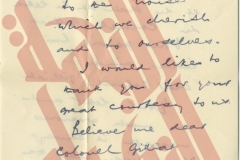 to be house
which we cherish
and to ourselves.
I would like to
thank you for your
great courtesy to us
Believe me dear
Colonel